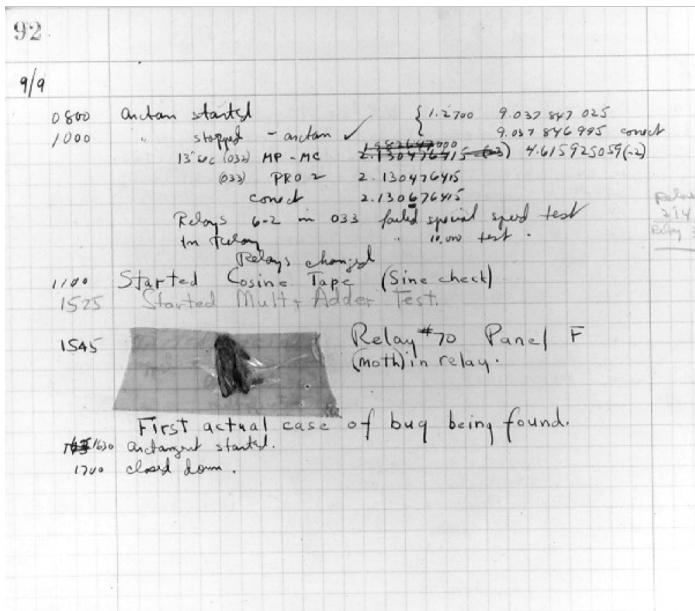 92
9/9
0800 antan started { 1.2700 9.037 847 025
1000 " stopped - antan ✓ 9.037 846 995 conect
13" uc (032) MP - MC 2.130476415 (-3) 4.615925059(-2)
(033) PRO 2 2.130476415
conect 2.130676415
Relays 6-2 in 033 failed special speed test
in relay " 10.000 test.
Relays changed
1100 Started Cosine Tape (Sine check)
1525 Started Mult + Adder Test.
1545 Relay #70 Panel F
(moth) in relay.
First actual case of bug being found.
1630 antangent started.
1700 closed down.